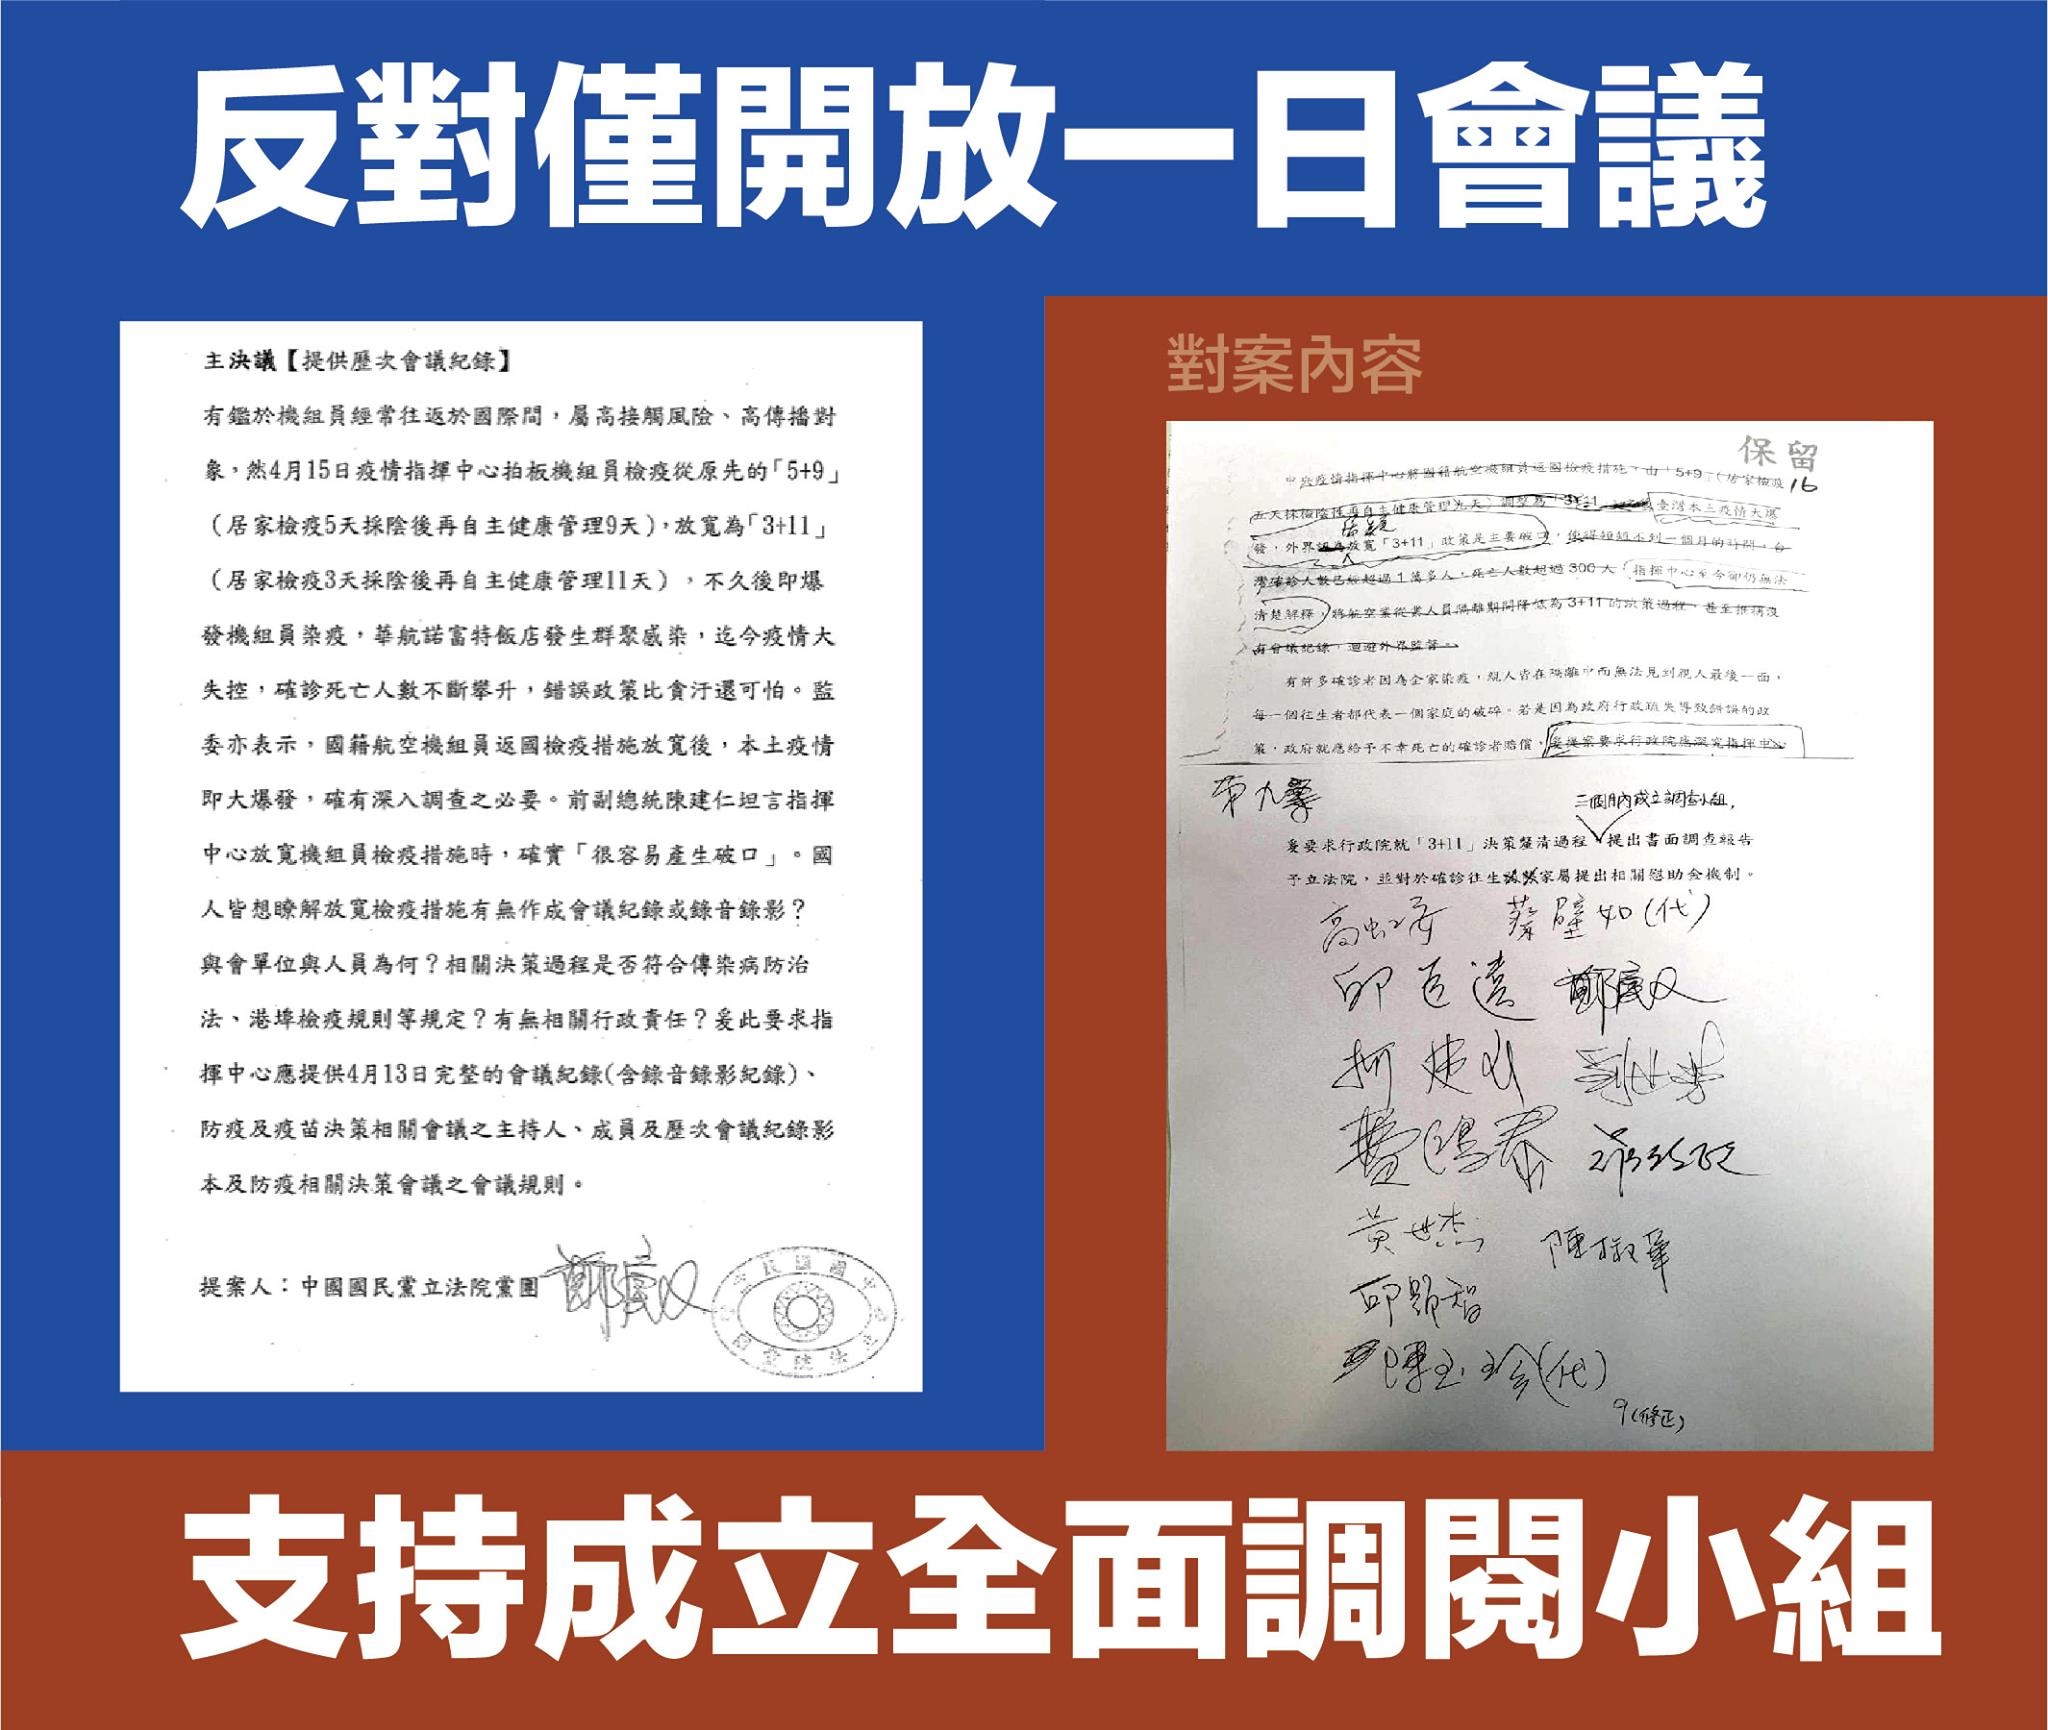 反對僅開放一日會議
主決議【提供歷次會議紀錄】
有鑑於機組員經常往返於國際間，屬高接觸風險、高傳播對
象，然4月15日疫情指揮中心拍板機組員檢疫從原先的「5+9」
（居家檢疫5天採陰後再自主健康管理9天），放寬為「3+11」
（居家檢疫3天採陰後再自主健康管理11天），不久後即爆
發機組員染疫，華航諾富特飯店發生群聚感染，迄今疫情大
失控，確診死亡人數不斷攀升，錯誤政策比貪汙還可怕。監
委亦表示，國籍航空機組員返國檢疫措施放寬後，本土疫情
即大爆發，確有深入調查之必要。前副總統陳建仁坦言指揮
中心放寬機組員檢疫措施時，確實「很容易產生破口」。國
人皆想瞭解放寬檢疫措施有無作成會議紀錄或錄音錄影？
與會單位與人員為何？相關決策過程是否符合傳染病防治
法、港埠檢疫規則等規定？有無相關行政責任？爰此要求指
揮中心應提供4月13日完整的會議紀錄(含錄音錄影紀錄)、
防疫及疫苗決策相關會議之主持人、成員及歷次會議紀錄影
本及防疫相關決策會議之會議規則。
提案人：中國國民黨立法院黨團
對案內容
保留
16
中央疫情指揮中心將國籍航空機組員返國檢疫措施，由「5+9」（居家檢疫
五天採檢陰性再自主健康管理九天）調整為「3+11 臺灣本土疫情大爆
發，外界認為放寬「3+11」政策是主要破口，使得短短不到一個月的時間，台
灣確診人數已經超過1萬多人，死亡人數超過300人，指揮中心至今卻仍無法
清楚解釋，將航空業從業人員隔離期間降低為3+11的決策過程，甚至推稱沒
有會議紀錄，迴避外界監督。
有許多確診者因為全家染疫，親人皆在隔離中而無法見到親人最後一面，
每一個往生者都代表一個家庭的破碎。若是因為政府行政疏失導致錯誤的政
策，政府就應給予不幸死亡的確診者賠償，爰提案要求行政院應深究指揮中心
第九案
三個月內成立調查小組，
爰要求行政院就「3+11」決策釐清過程 提出書面調查報告
予立法院，並對於確診往生 家屬提出相關慰助金機制。
高虹安 蔡壁如(代)
邱臣遠
柯建銘
費鴻泰
黃世杰 陳椒華
邱顯智
陳玉珍(代)
9(修正)
支持成立全面調閱小組